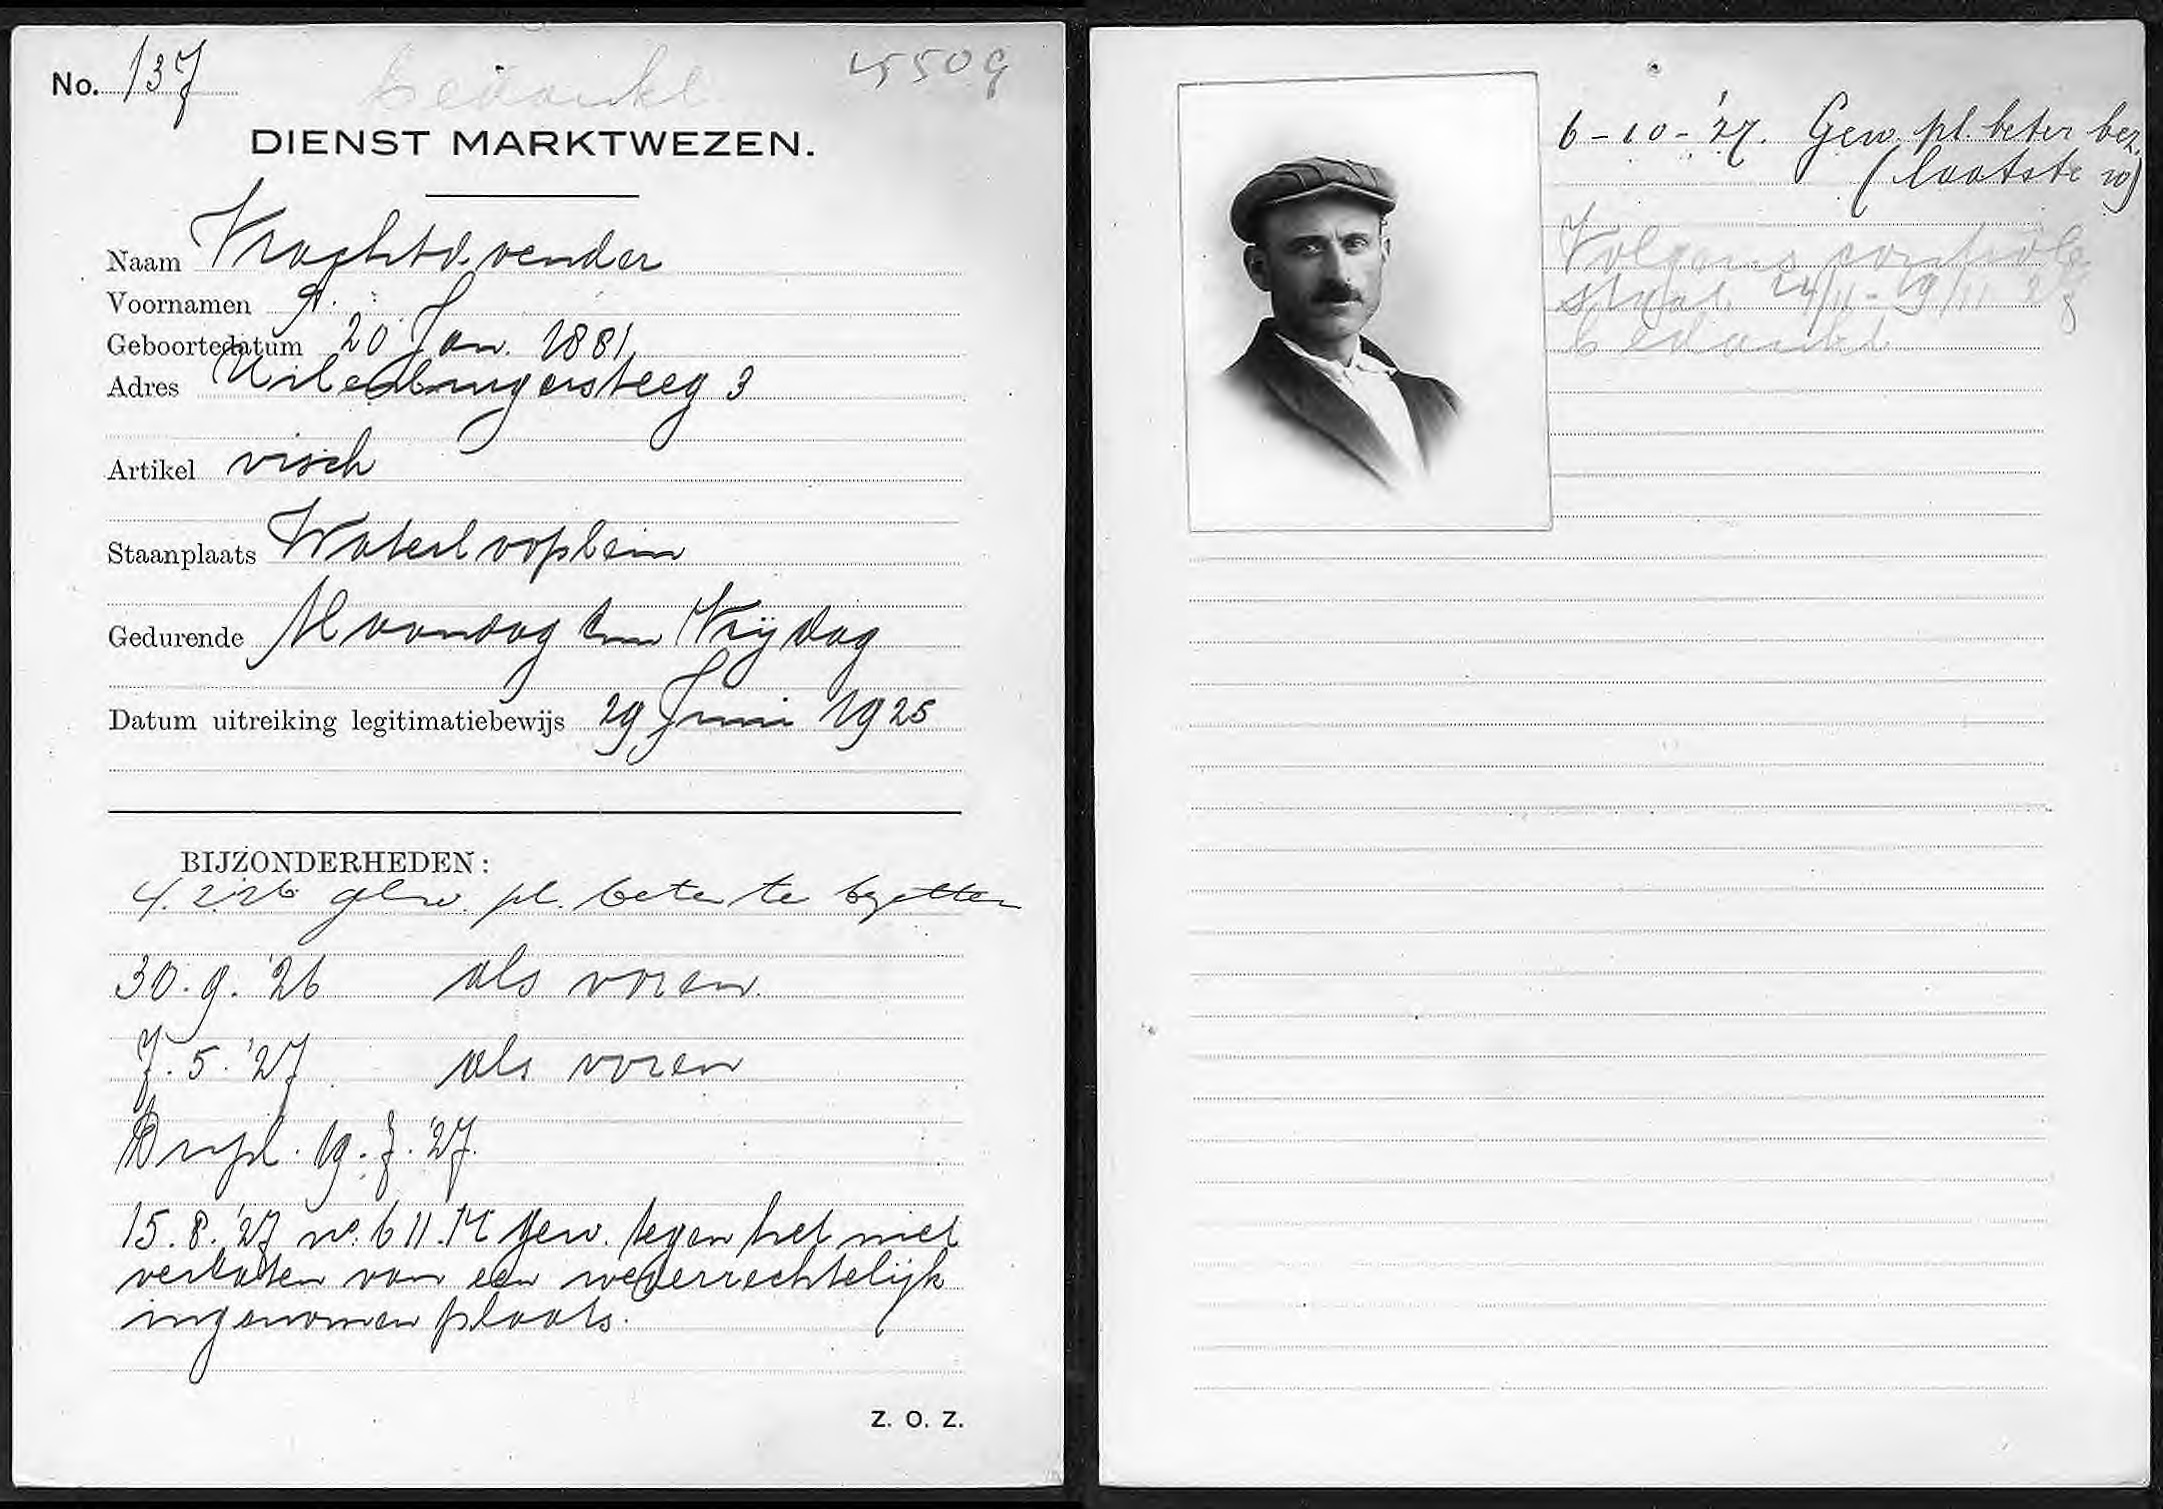 No. 137
bedankt
4509
DIENST MARKTWEZEN.
Naam Vrachtd.vender
Voornamen A.
Geboortedatum 20 Jan. 1881
Adres Uilenburgersteeg 3
Artikel visch
Staanplaats Waterlooplein
Gedurende Maandag t/m Vrijdag
Datum uitreiking legitimatiebewijs 29 Juni 1925
BIJZONDERHEDEN:
4.2.26 gew. pl. beter te bezetten
30.9.'26 als voren.
7.5.'27 als voren
19.7.'27.
15.8.'27 no. 611. gew. tegen het niet
verlaten van een wederrechtelijk
ingenomen plaats.
Z. O. Z.
6-10-'27. Gew. pl. beter bez.
(laatste w)
Volgens controle
staat 24/11-29/11
bedankt